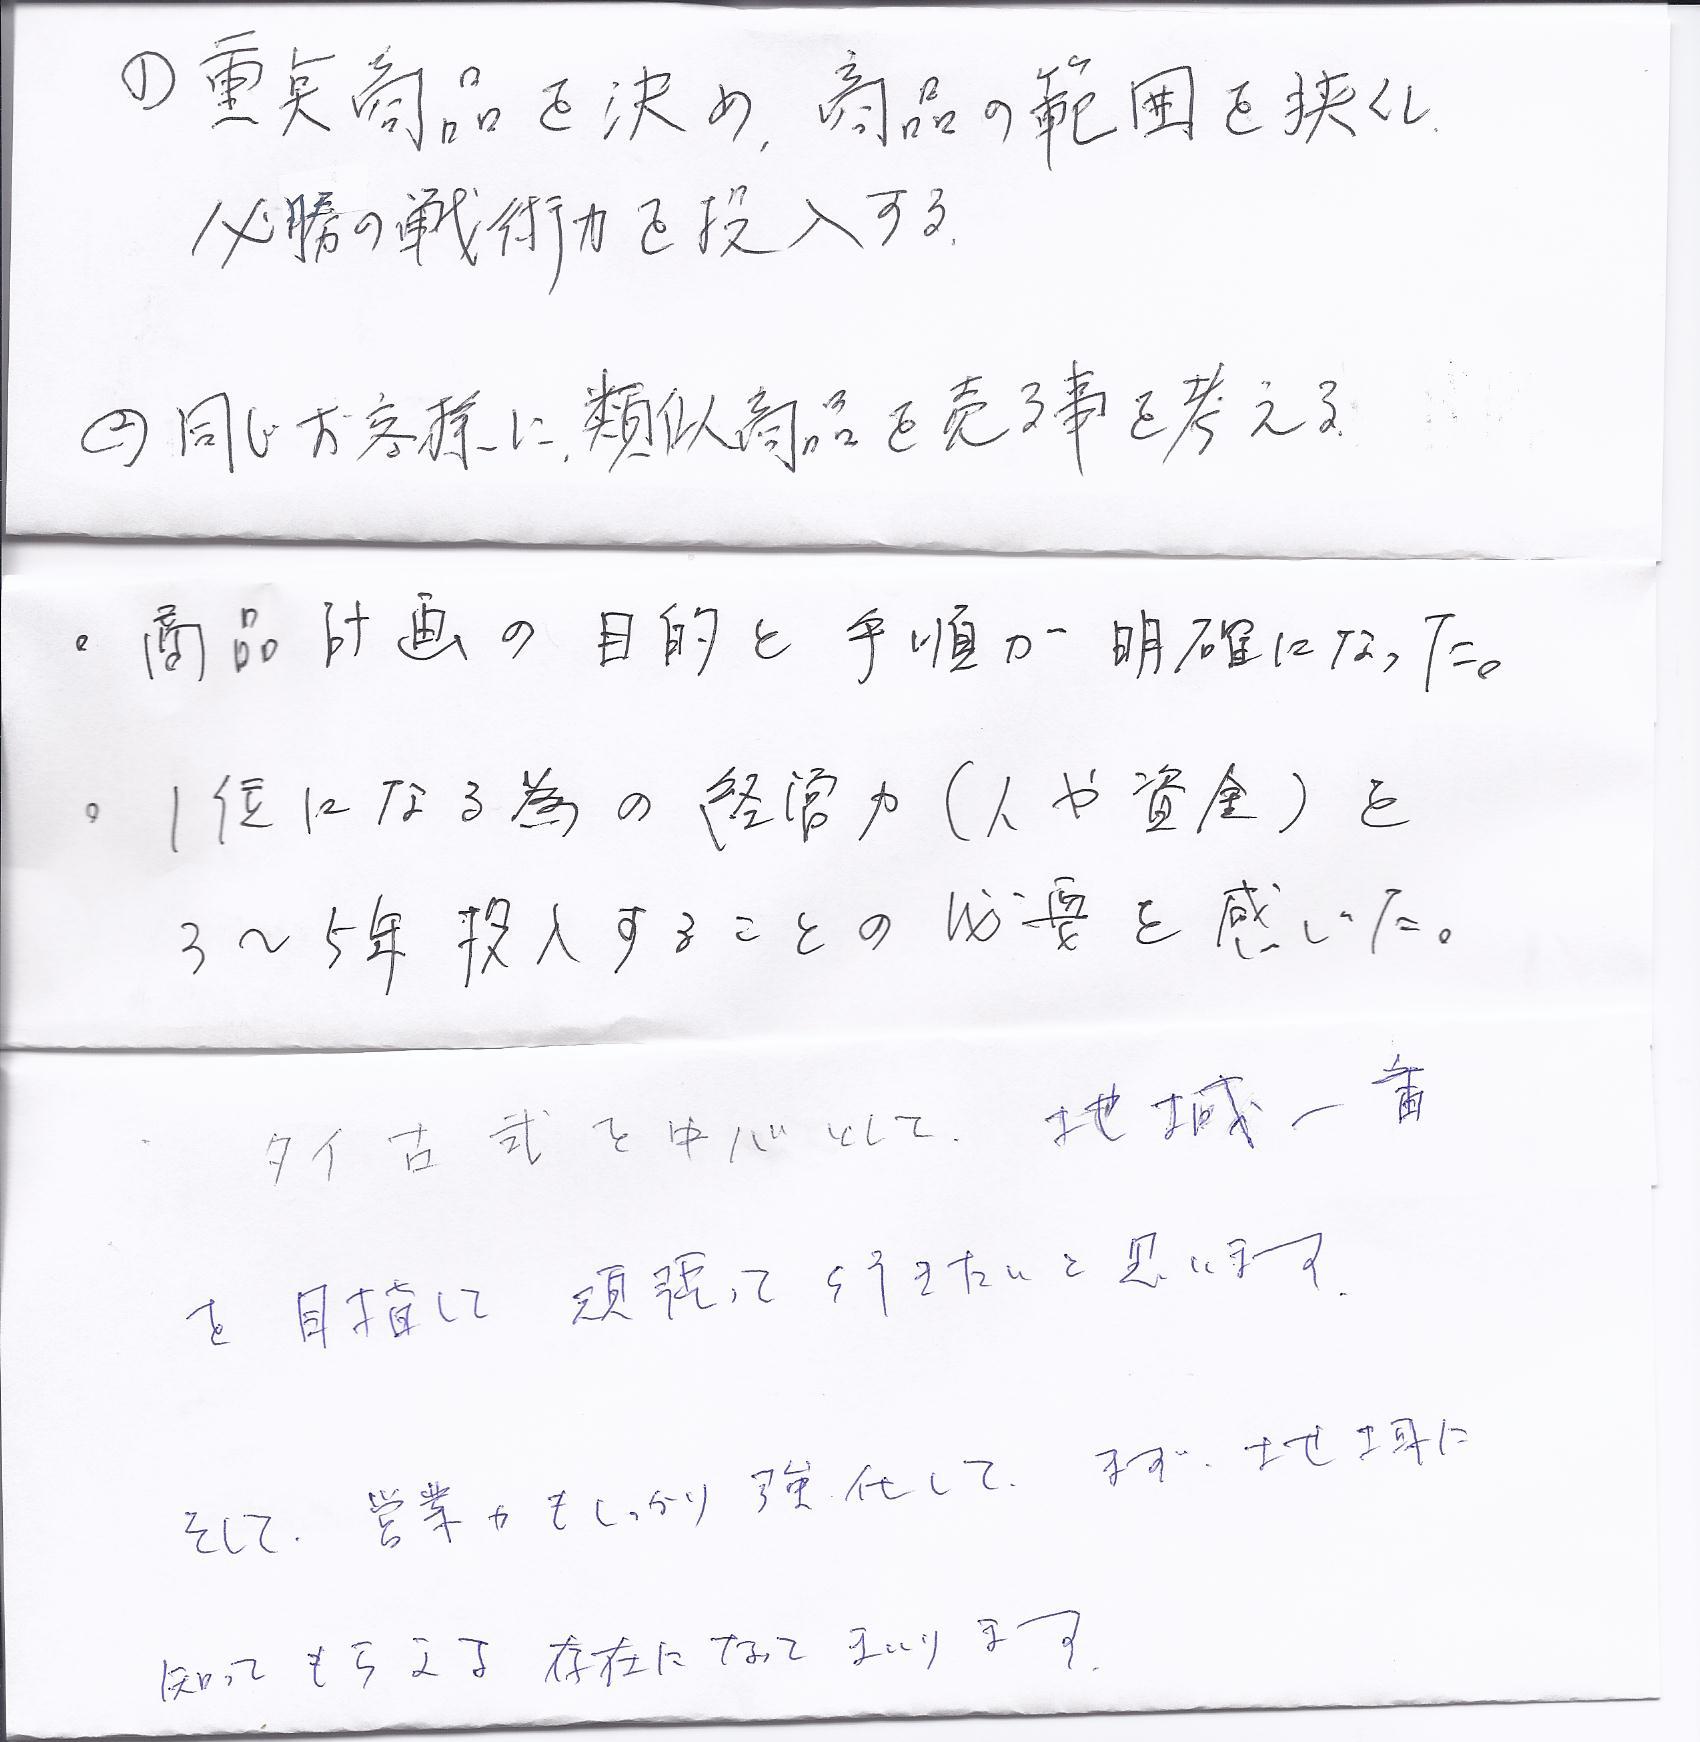 ① 重点商品を決め、商品の範囲を狭くし、
必勝の戦術力を投入する。
② 同じお客様に、類似商品を売る事を考える。
• 商品計画の目的と手順が明確になった。
• 1位になる為の経営力(人や資金)を
3〜5年投入することの必要を感じた。
タイ古式を中心として、地域一番
を目指して頑張って行きたいと思います。
そして、営業力もしっかり強化して、まず、地域に
知ってもらえる存在になってまいります。